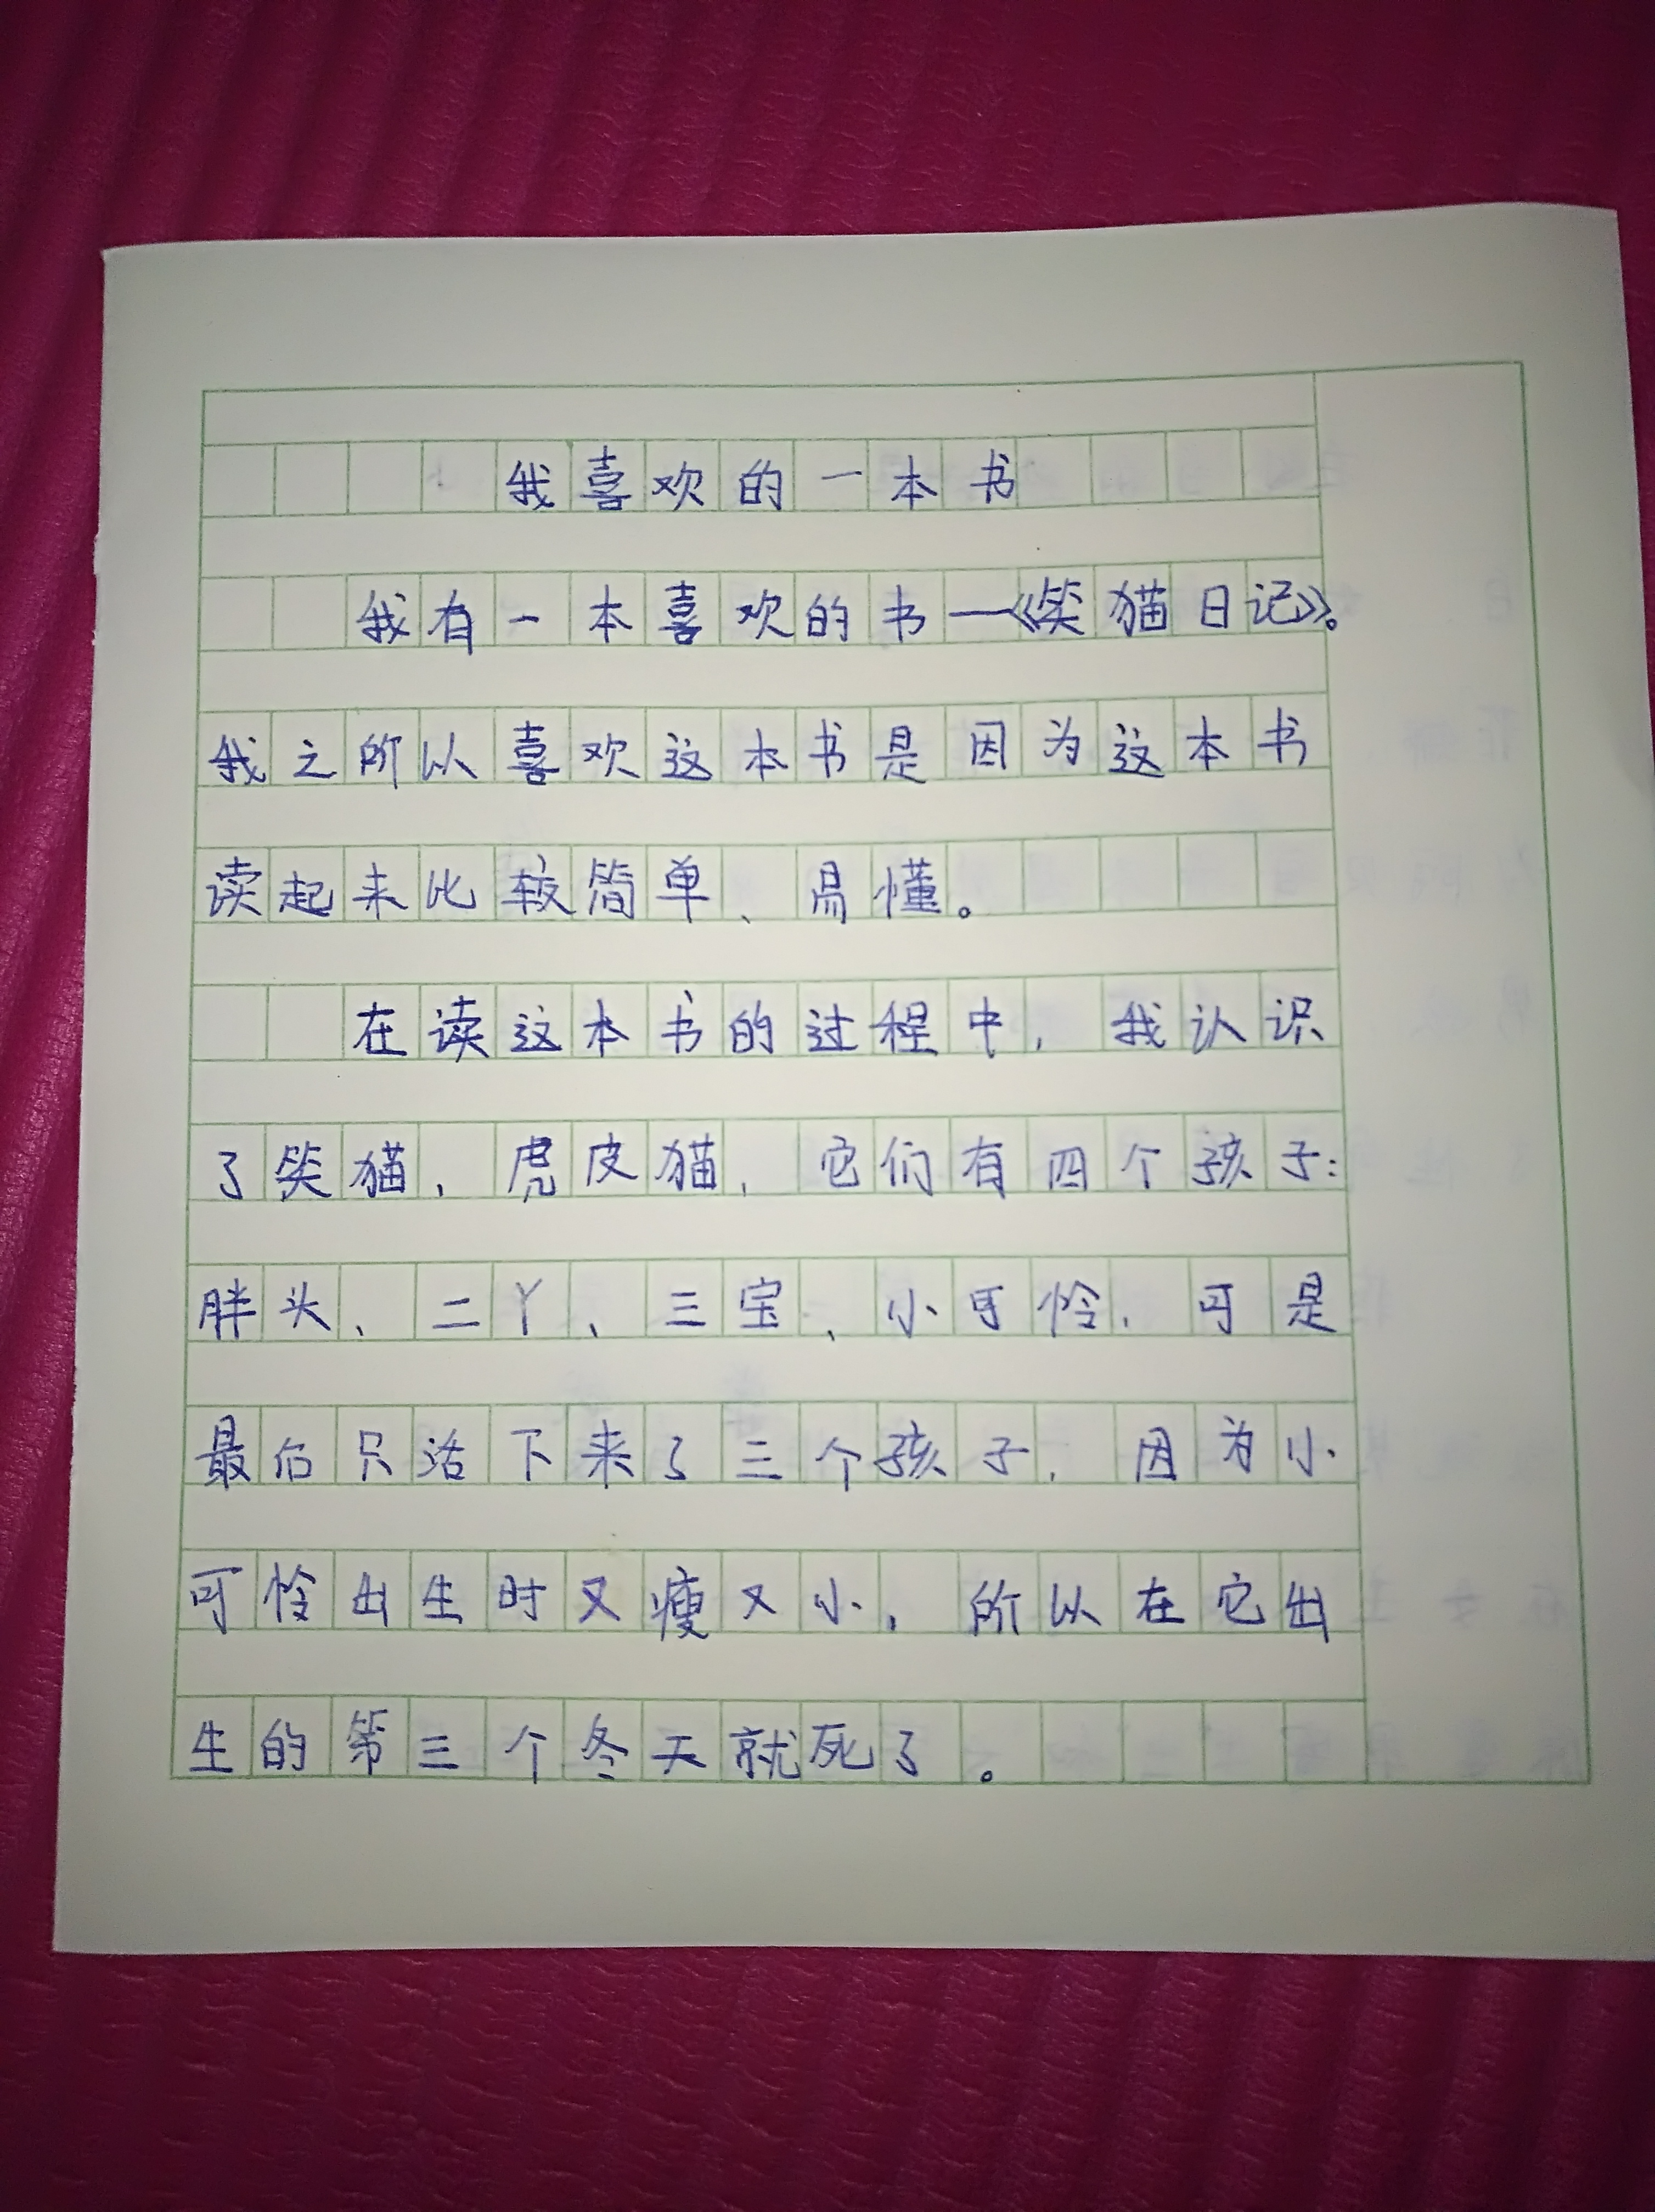 我喜欢的一本书
我有一本喜欢的书—《笑猫日记》。
我之所以喜欢这本书是因为这本书
读起来比较简单、易懂。
在读这本书的过程中，我认识
了笑猫，虎皮猫，它们有四个孩子：
胖头、二丫、三宝、小可怜，可是
最后只活下来了三个孩子，因为小
可怜出生时又瘦又小，所以在它出
生的第三个冬天就死了。